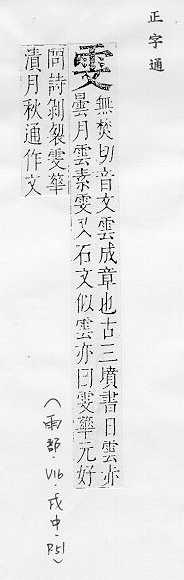 正字通
雯 無焚切音文雲成章也古三墳書日雲亦
曇月雲素雯又石文似雲亦曰雯華元好
問詩剝裂雯華
漬月秋通作文
(雨部.V16.戌中.P.51)